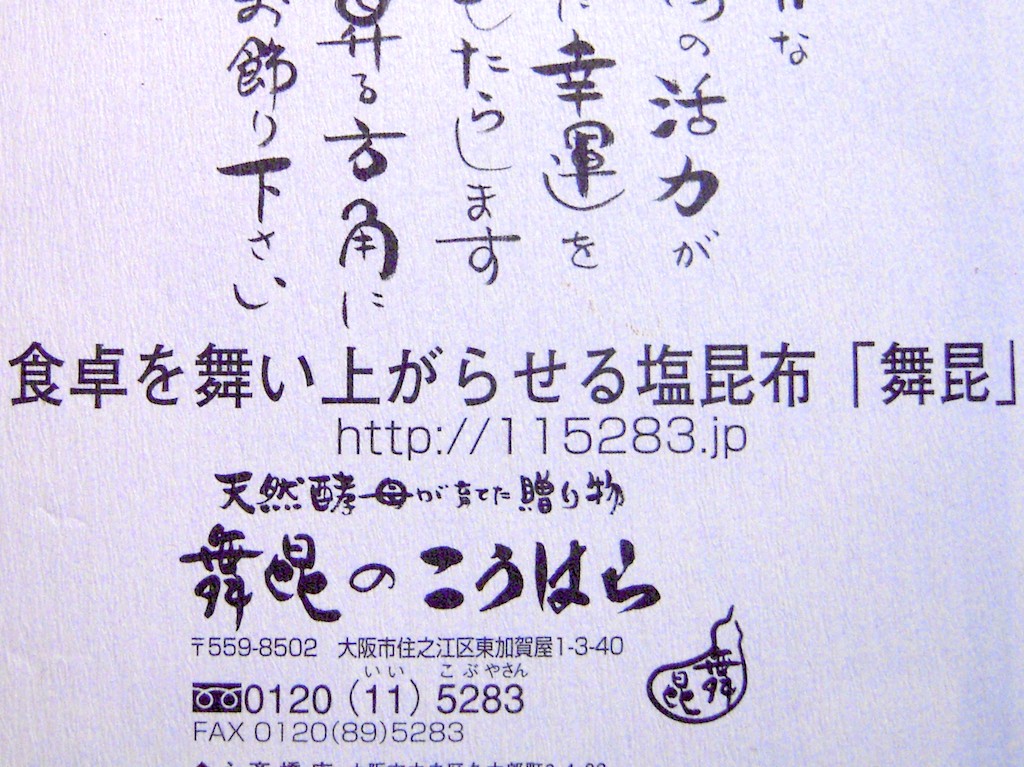 な
の活力が
幸運を
たらします
昇る方角に
お飾り下さい
食卓を舞い上がらせる塩昆布「舞昆」
http://115283.jp
天然酵母が育てた贈り物
舞昆のこうはら
〒559-8502 大阪市住之江区東加賀屋1-3-40
いい こぶやさん
0120（11）5283
FAX 0120(89)5283
舞昆